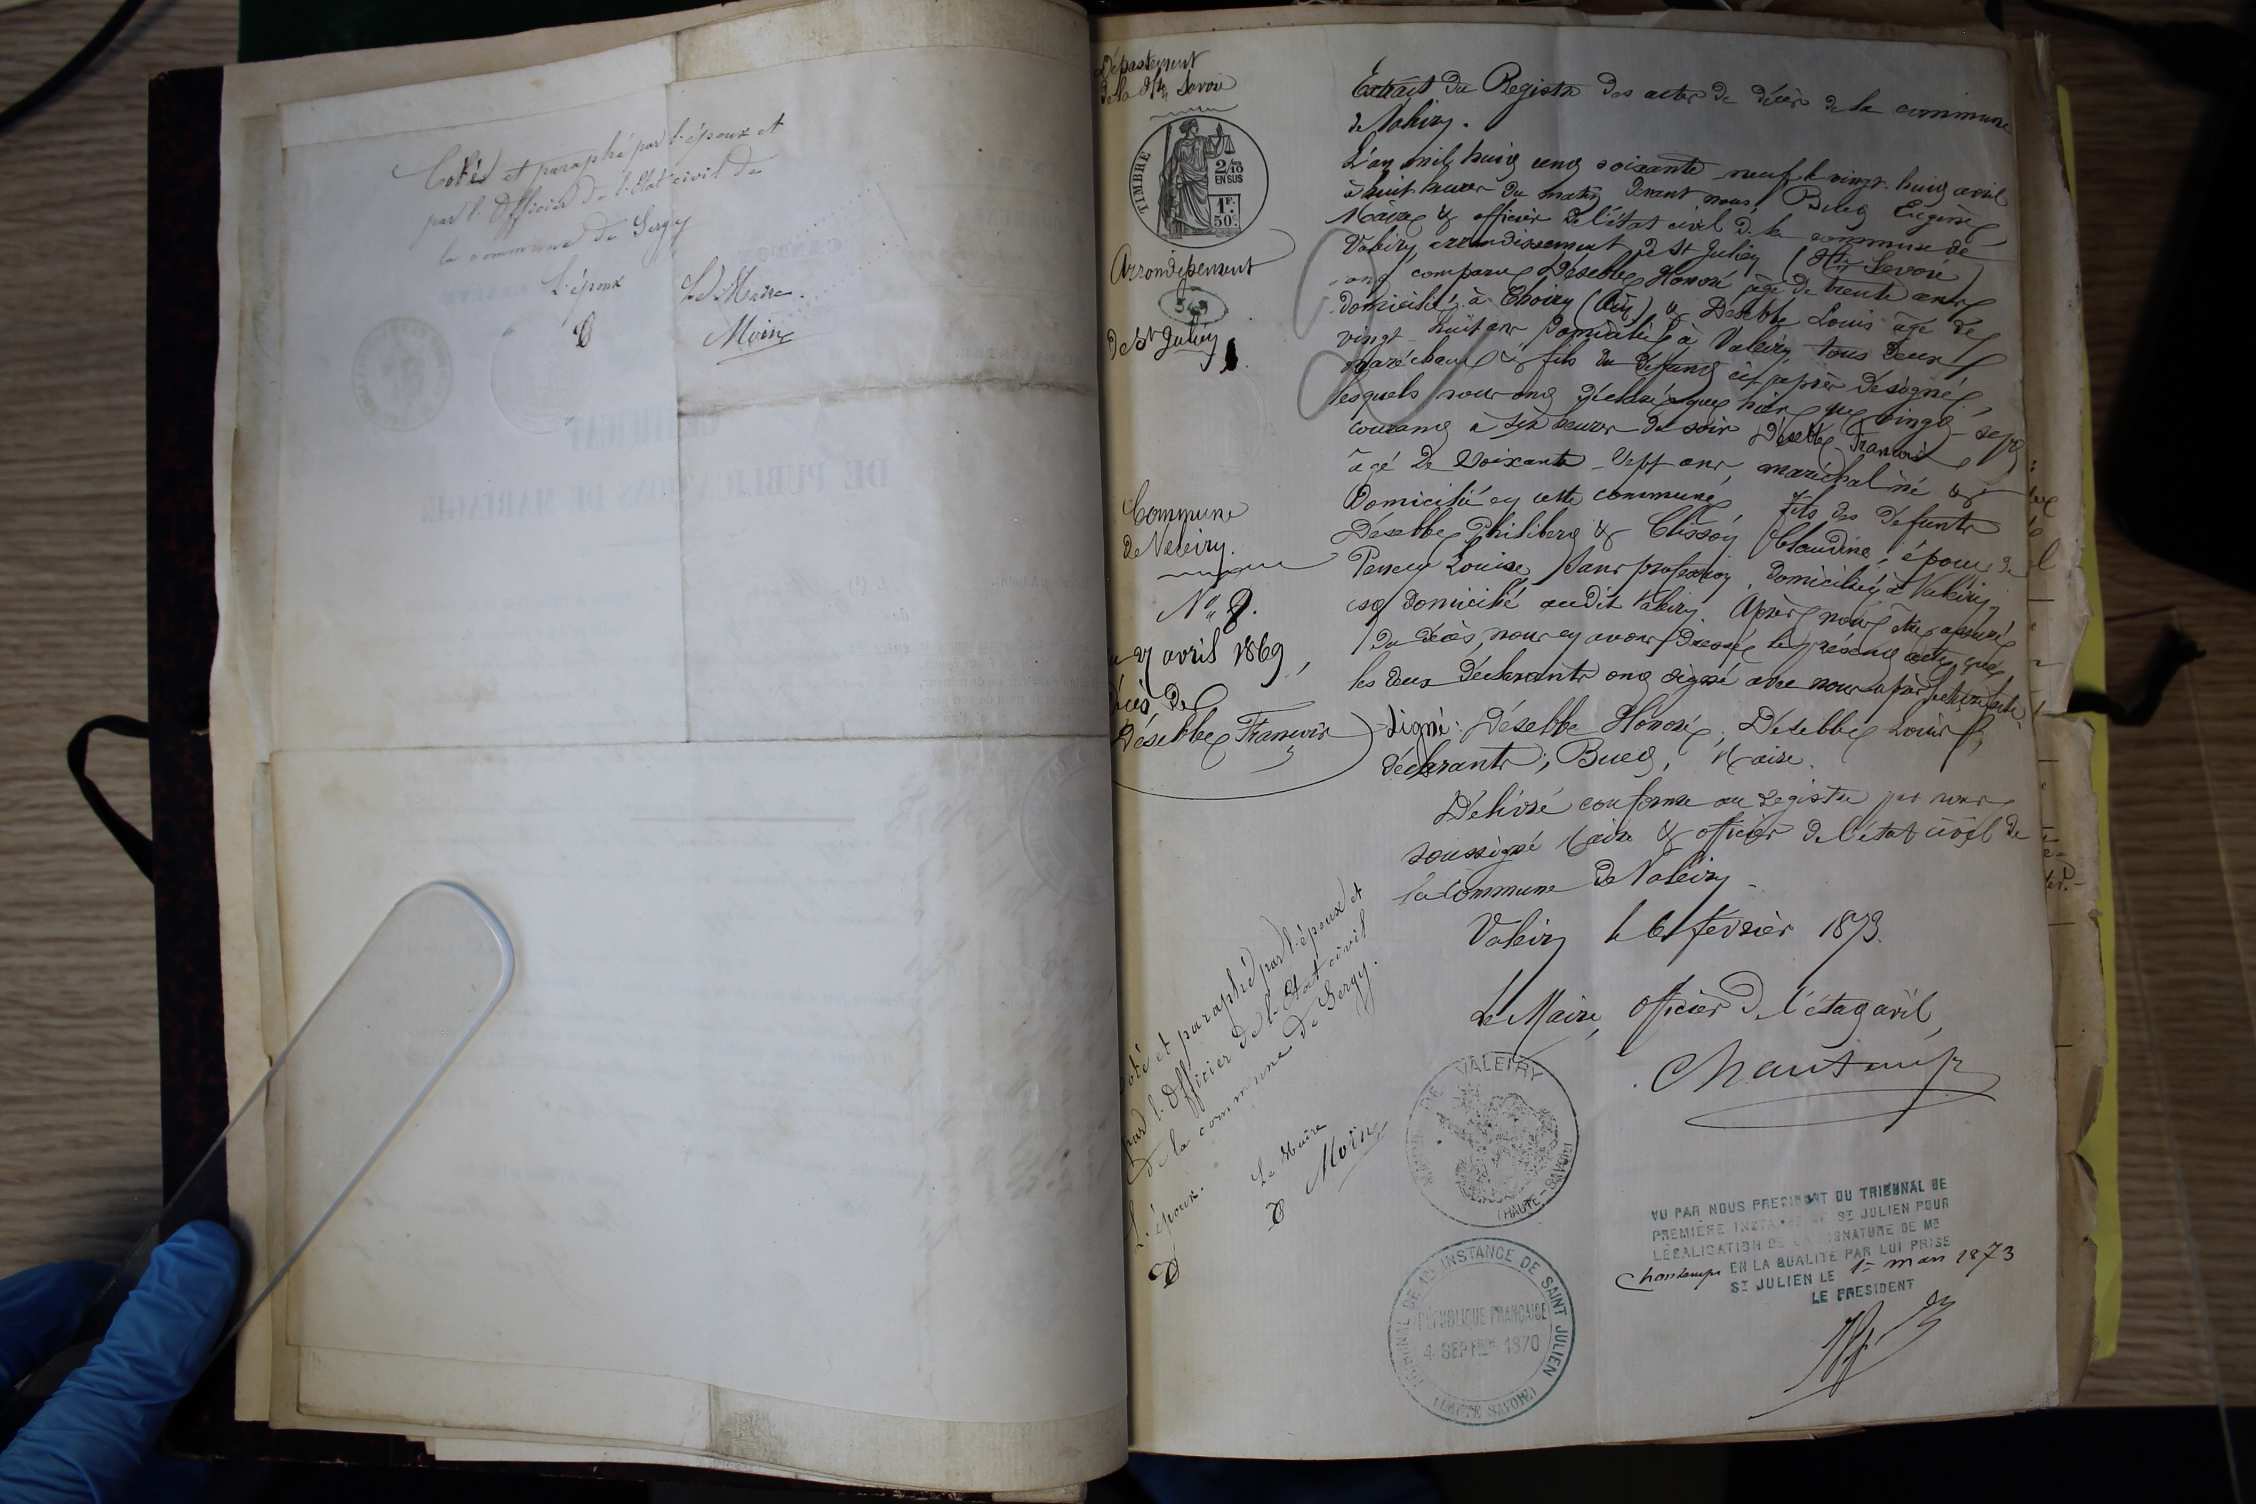 Coté et paraphé par l'époux et
par l'Officier de l'Etat civil de
la commune de Sergy
L'époux Le Maire.
D Moine
Département
de la Hte Savoie
TIMBRE
2/10
EN SUS
1F.
50c.
Arrondissement
563
de St Julien
Commune
de Valeiry.
No 8.
27 avril 1869,
décès de
Désebbe François
Extrait du Registre des actes de décès de la commune
de Valeiry.
L'an mil huit cent soixante neuf le vingt huit avril
à huit heures du matin devant nous Eugène
Maire & officier de l'état civil de la commune de
Valeiry arrondissement de St Julien (Hte Savoie)
ont comparu Désebbe Honoré âgé de trente ans
domicilié à (Ain) & Desebbe Louis âgé de
vingt huit ans domicilié à Valeiry, tous deux
maréchaux & fils du défunt ci après désigné,
lesquels nous ont déclaré que hier vingt-sept
courant à six heures du soir Désebbe François
âgé de soixante-sept ans, maréchal né &
domicilié en cette commune, fils des défunts
Désebbe Philibert & Clisson Claudine, époux de
Louise sans profession, domiciliée à Valeiry,
est domicilié audit Valeiry. Après nous être assuré
du décès, nous en avons dressé le présent acte que
les deux déclarants ont signé avec nous après lecture faite.
Signé: Désebbe Honoré, Désebbe Louis,
déclarants; Maire.
Délivré conforme au registre par nous
soussigné Maire & officier de l'état civil de
la Commune de Valeiry
Valeiry le 6 février 1873.
Le Maire, officier de l'état civil,
Chautemps
Coté et paraphé par l'époux et
par l'Officier de l'Etat civil
de la commune de Sergy.
L'époux. Le Maire
D Moine
MAIRIE DE VALEIRY
(HAUTE-SAVOIE)
VU PAR NOUS PRESIDENT DU TRIBUNAL DE
PREMIÈRE INSTANCE DE ST JULIEN POUR
LÉGALISATION DE LA SIGNATURE DE MR
Chautemps EN LA QUALITÉ PAR LUI PRISE
ST JULIEN LE 1er mars 1873
LE PRESIDENT
TRIBUNAL DE 1RE INSTANCE DE SAINT JULIEN
RÉPUBLIQUE FRANÇAISE
4 SEPTBRE 1870
(HAUTE SAVOIE)